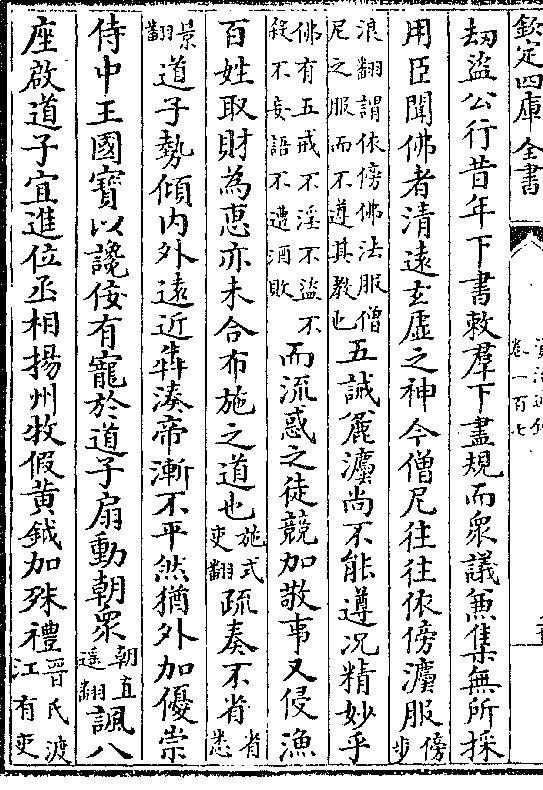 欽定四庫全書
資治通鑑
卷一百七
刼盜公行昔年下書敕羣下盡規而衆議兼集無所採
用臣聞佛者清遠玄虛之神今僧尼往往依傍灋服傍步
浪翻謂依傍佛法服僧尼之服而不遵其教也五誡麤灋尚不能遵況精妙乎
佛有五戒不淫不盜不殺不妄語不遭酒敗而流惑之徒競加敬事又侵漁
百姓取財為惠亦未合布施之道也施式吏翻疏奏不省省悉
景翻道子勢傾内外遠近犇湊帝漸不平然猶外加優崇
侍中王國寶以讒佞有寵於道子扇動朝衆朝直遥翻諷八
座啟道子宜進位丞相揚州牧假黃鉞加殊禮晉氏渡江有吏